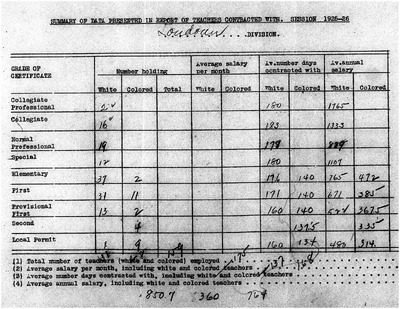 SUMMARY OF DATA PRESENTED IN REPORT OF TEACHERS CONTRACTED WITH. SESSION 1925-26
Loudoun...DIVISION.
GRADE OF CERTIFICATE Number holding Average salary per month Av.number days contracted with Av.annual salary
White Colored Total White Colored White Colored White Colored
Collegiate Professional 180 1765
Collegiate 16 183 1333
Normal Professional 19 178
Special 12 180 1107
Elementary 37 2 176 140 765 472
First 31 11 171 140 671 385
Provisional First 13 2 160 140 367.5
Second 4 137.5 335
Local Permit 9 160 134 480 314
(1) Total number of teachers (white and colored) employed
(2) Average salary per month, including white and colored teachers
(3) Average number days contracted with, including white and colored teachers
(4) Average annual salary, including white and colored teachers
850.7 360 764